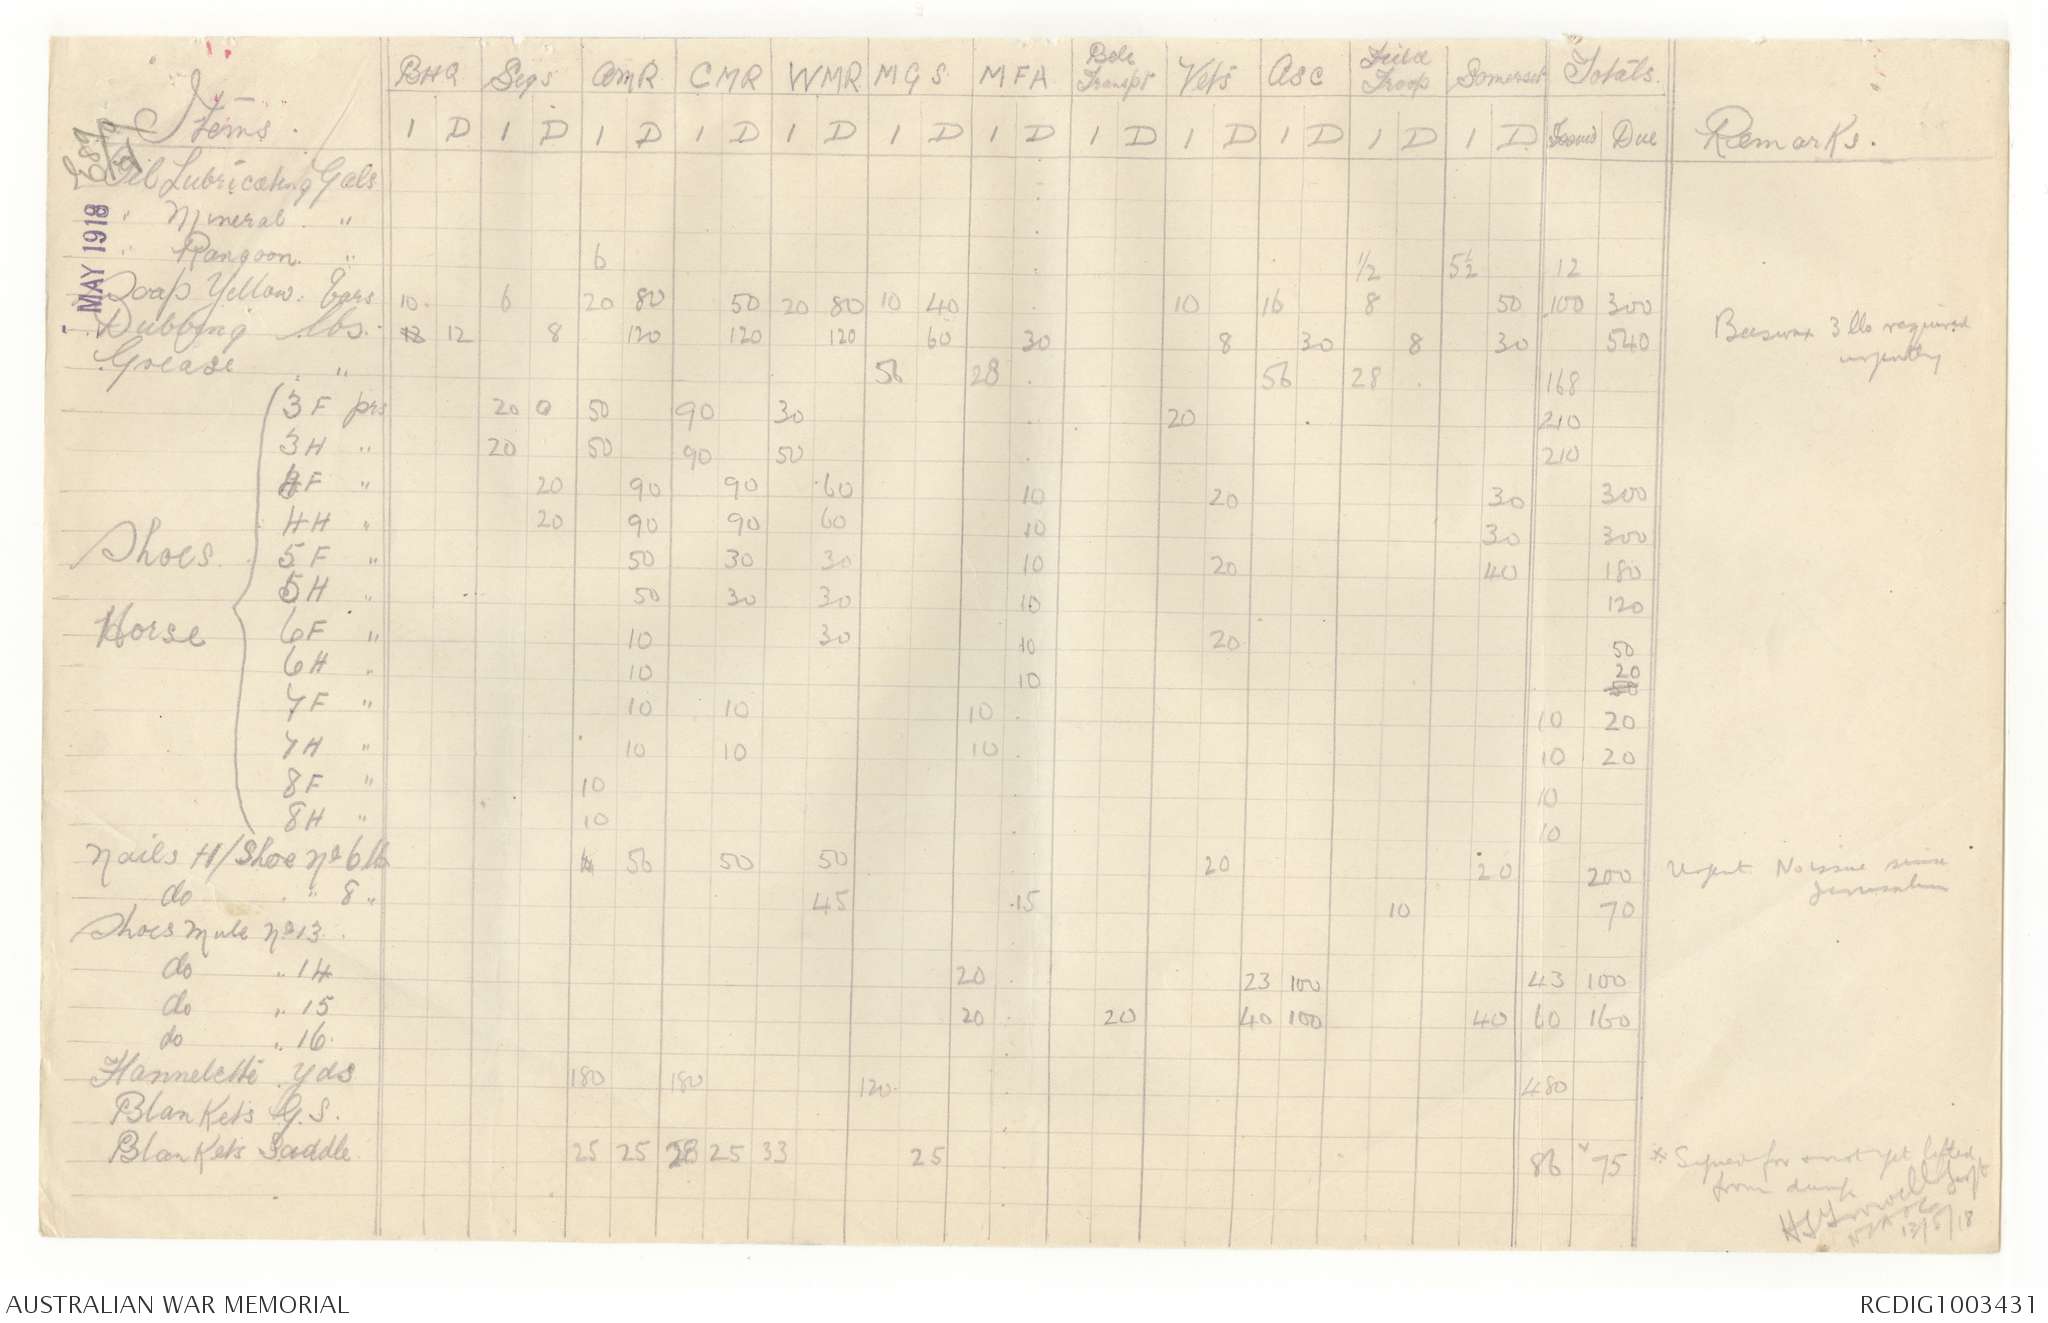 Items. BHQ Sigs AMR CMR WMR MGS MFA Bde Transpt Vets ASC Field Troop Somerset Totals. Remarks.
I D I D I D I D I D I D I D I D I D I D I D I D Issued Due
Oil Lubricating Gals
" Mineral "
" Rangoon " 6 1/2 5½ 12
Soap Yellow. Bars 10 6 20 80 50 20 80 10 40 10 16 8 50 100 300
Dubbing lbs. 12 8 120 120 120 60 30 8 30 8 30 540 Beeswax 3 lbs required urgently
Grease " 56 28 56 28 168
Shoes Horse
3F prs 20 0 50 90 30 20 210
3H " 20 50 90 50 210
4F " 20 90 90 60 10 20 30 300
4H " 20 90 90 60 10 30 300
5F " 50 30 30 10 20 40 180
5H " 50 30 30 10 120
6F " 10 30 10 20 50
6H " 10 10 20
7F " 10 10 10 10 20
7H " 10 10 10 10 20
8F " 10 10
8H " 10 10
Nails H/Shoe No 6 lb 50 50 50 20 20 200 Urgent No issue since Jerusalem
do " 8 " 45 15 10 70
Shoes Mule No 13.
do " 14 20 23 100 43 100
do " 15 20 20 40 100 40 60 160
do " 16.
Flannelette yds 180 180 120 480
Blankets G.S.
Blankets Saddle 25 25 28 25 33 25 86 * 75 * Signed for & not yet lifted
from dump
13/5/18
1 MAY 1918
AUSTRALIAN WAR MEMORIAL
RCDIG1003431